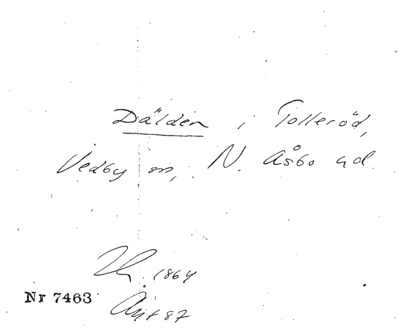 Dälden i Tolleröd,
Vedby sn, N. Åsbo hd.
1864
Nr 7463
87